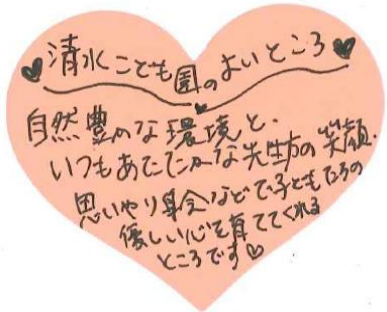 ♥清水こども園のよいところ♥
自然豊かな環境と、
いつもあたたかな先生方の笑顔。
思いやり身念などで子どもたちの
優しい心を育ててくれる
ところです♡